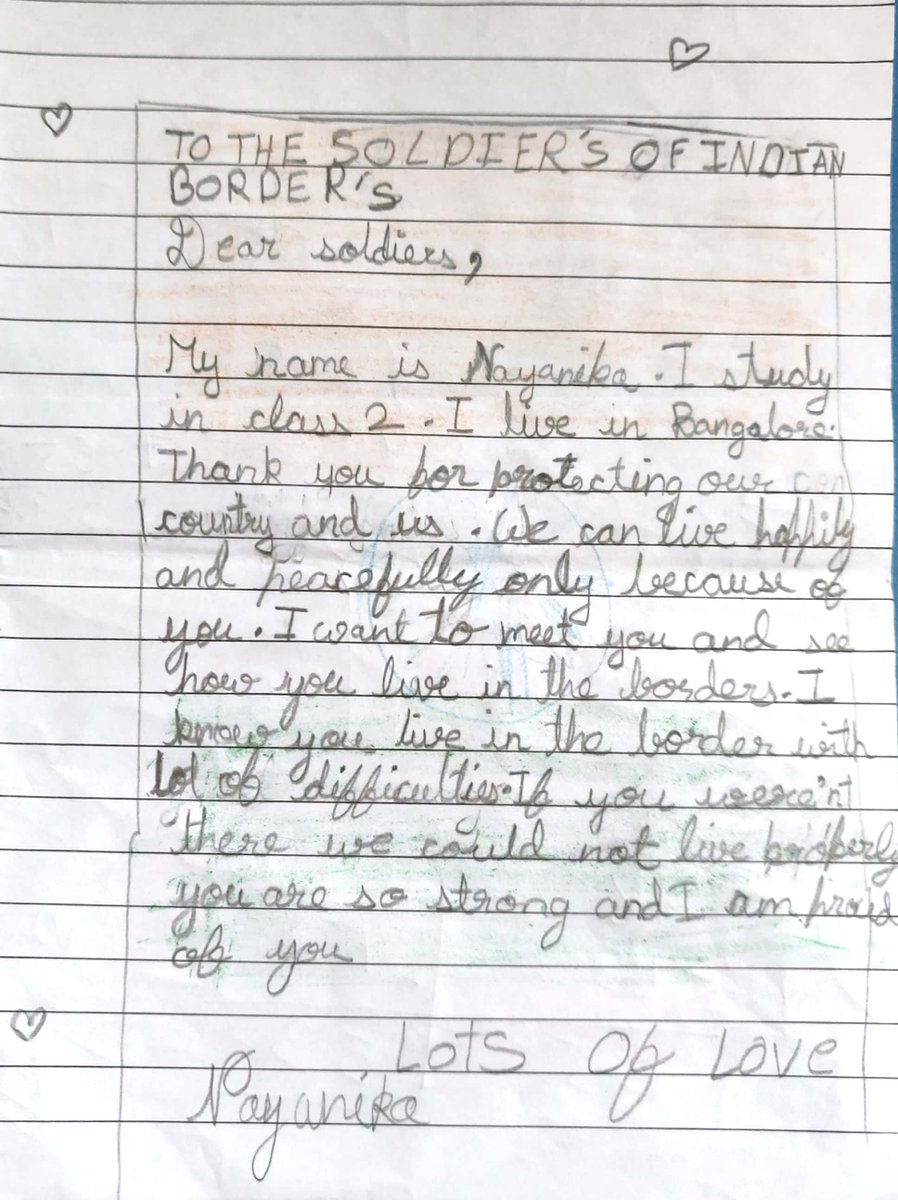 TO THE SOLDIER'S OF INDIAN
BORDER'S
Dear soldiers,
My name is Nayanika. I study
in class 2. I live in Bangalore.
Thank you for protecting our con
country and us. We can live happily
and peacefully only because of
you. I want to meet you and see
how you live in the borders. I
know you live in the border with
lot of difficulties. If you were'nt
there we could not live properly
you are so strong and I am proud
of you
LOTS OF LOVE
Nayanika